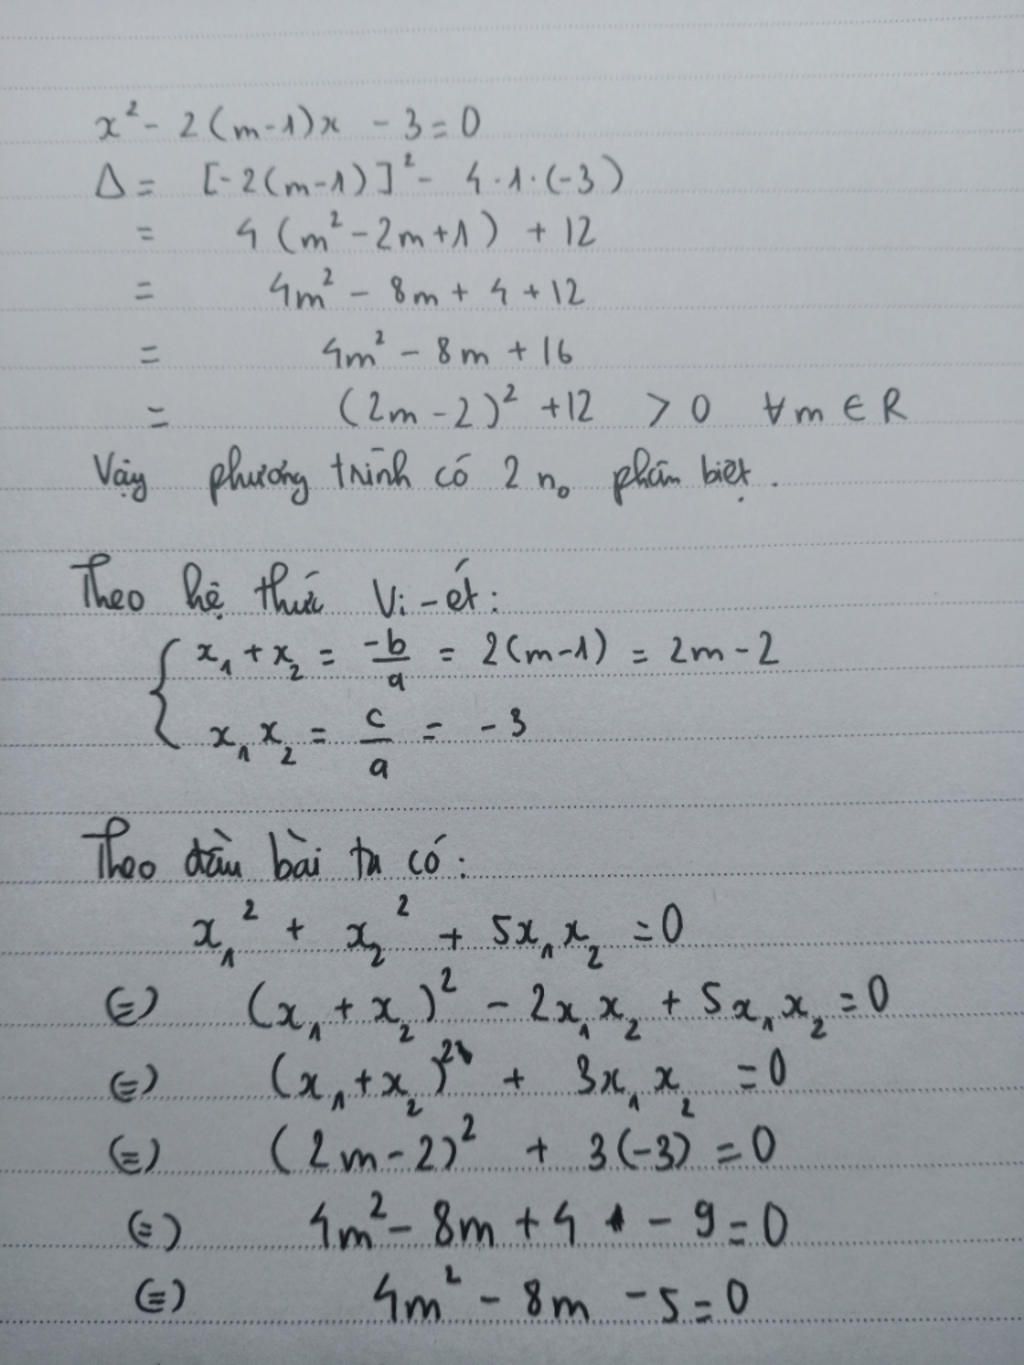 x² - 2(m-1)x - 3 = 0
Δ = [-2(m-1)]² - 4·1·(-3)
= 4(m² - 2m + 1) + 12
= 4m² - 8m + 4 + 12
= 4m² - 8m + 16
= (2m - 2)² + 12 > 0 ∀m ∈ R
Vậy phương trình có 2 n₀ phân biệt.
Theo hệ thức Vi-ét:
{ x₁ + x₂ = -b/a = 2(m-1) = 2m - 2
x₁x₂ = c/a = -3
Theo đầu bài ta có:
x₁² + x₂² + 5x₁x₂ = 0
(=) (x₁ + x₂)² - 2x₁x₂ + 5x₁x₂ = 0
(=) (x₁ + x₂)² + 3x₁x₂ = 0
(=) (2m - 2)² + 3(-3) = 0
(=) 4m² - 8m + 4 - 9 = 0
(=) 4m² - 8m - 5 = 0